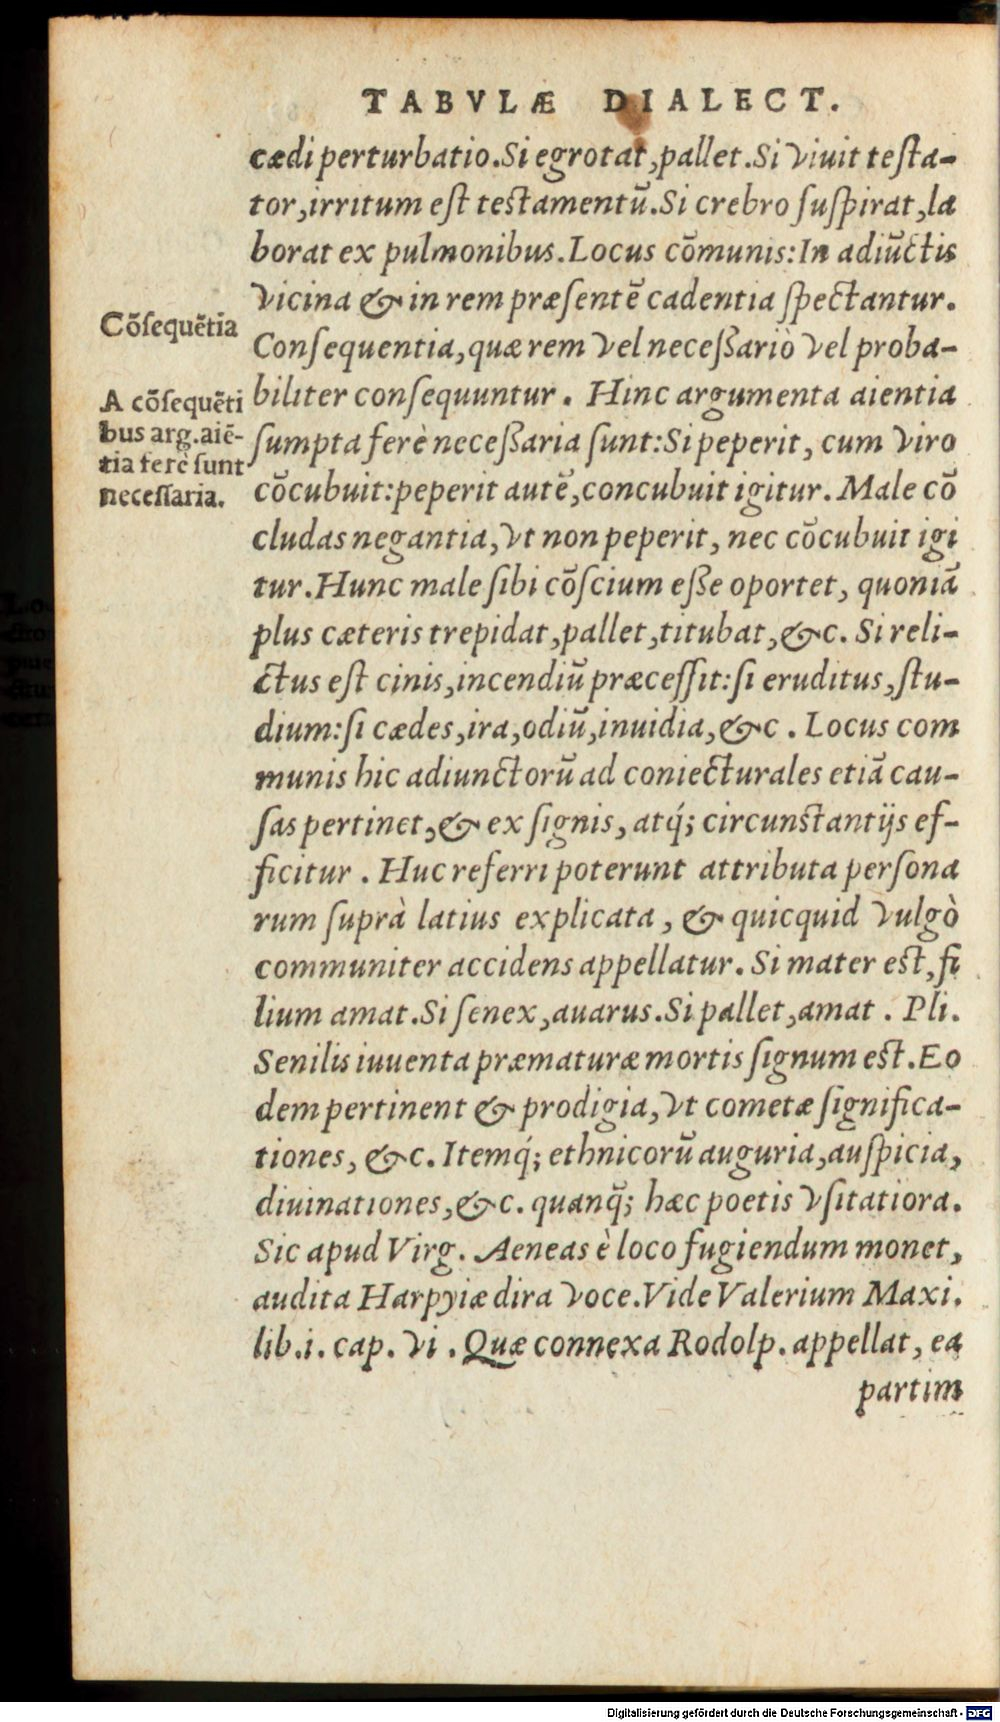 TABVLÆ DIALECT.
cædi perturbatio. Si egrotat, pallet. Si viuit testa-
tor, irritum est testamentũ. Si crebro suspirat, la
borat ex pulmonibus. Locus cõmunis: In adiũctis
vicina & in rem præsentẽ cadentia spectantur.
Cõsequẽtia
Consequentia, quæ rem vel necessariò vel proba-
biliter consequuntur. Hinc argumenta aientia
sumpta ferè necessaria sunt: Si peperit, cum viro
cõcubuit: peperit autẽ, concubuit igitur. Male cõ
A cõsequẽti
bus arg. aiẽ-
tia ferè sunt
necessaria.
cludas negantia, vt non peperit, nec cõcubuit igi
tur. Hunc male sibi cõscium esse oportet, quoniã
plus cæteris trepidat, pallet, titubat, &c. Si reli-
ctus est cinis, incendiũ præcessit: si eruditus, stu-
dium: si cædes, ira, odiũ, inuidia, &c. Locus com
munis hic adiunctorũ ad coniecturales etiã cau-
sas pertinet, & ex signis, atq́; circunstantijs ef-
ficitur. Huc referri poterunt attributa persona
rum suprà latius explicata, & quicquid vulgò
communiter accidens appellatur. Si mater est, fi
lium amat. Si senex, auarus. Si pallet, amat. Pli.
Senilis iuuenta præmaturæ mortis signum est. Eo
dem pertinent & prodigia, vt cometæ significa-
tiones, &c. Itemq́; ethnicorũ auguria, auspicia,
diuinationes, &c. quanq̃; hæc poetis vsitatiora.
Sic apud Virg. Aeneas è loco fugiendum monet,
audita Harpyiæ dira voce. Vide Valerium Maxi.
lib. i. cap. vi. Quæ connexa Rodolp. appellat, ea
partim
Digitalisierung gefördert durch die Deutsche Forschungsgemeinschaft - DFG